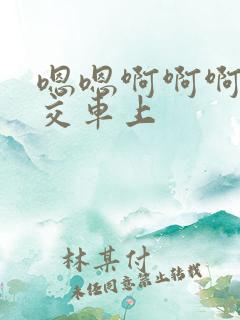 嗯嗯啊啊啊
交车上
林某付
未经同意禁止转载